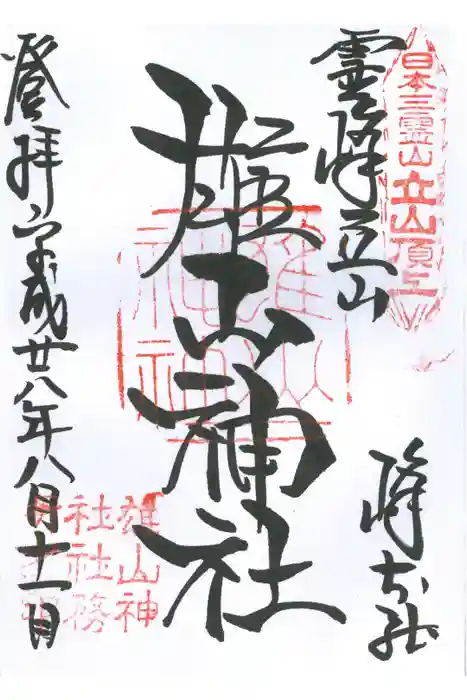 日本三霊山立山頂上
霊峰立山
峰本社
雄山神社
雄山
神社
登拝 平成廿八年八月十一日
雄山神
社社務